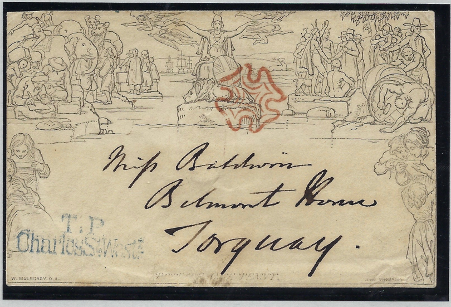 Miss Baldwin
Belmont House
Torquay.
T.P
Charles St West
W. MULREADY R.A.